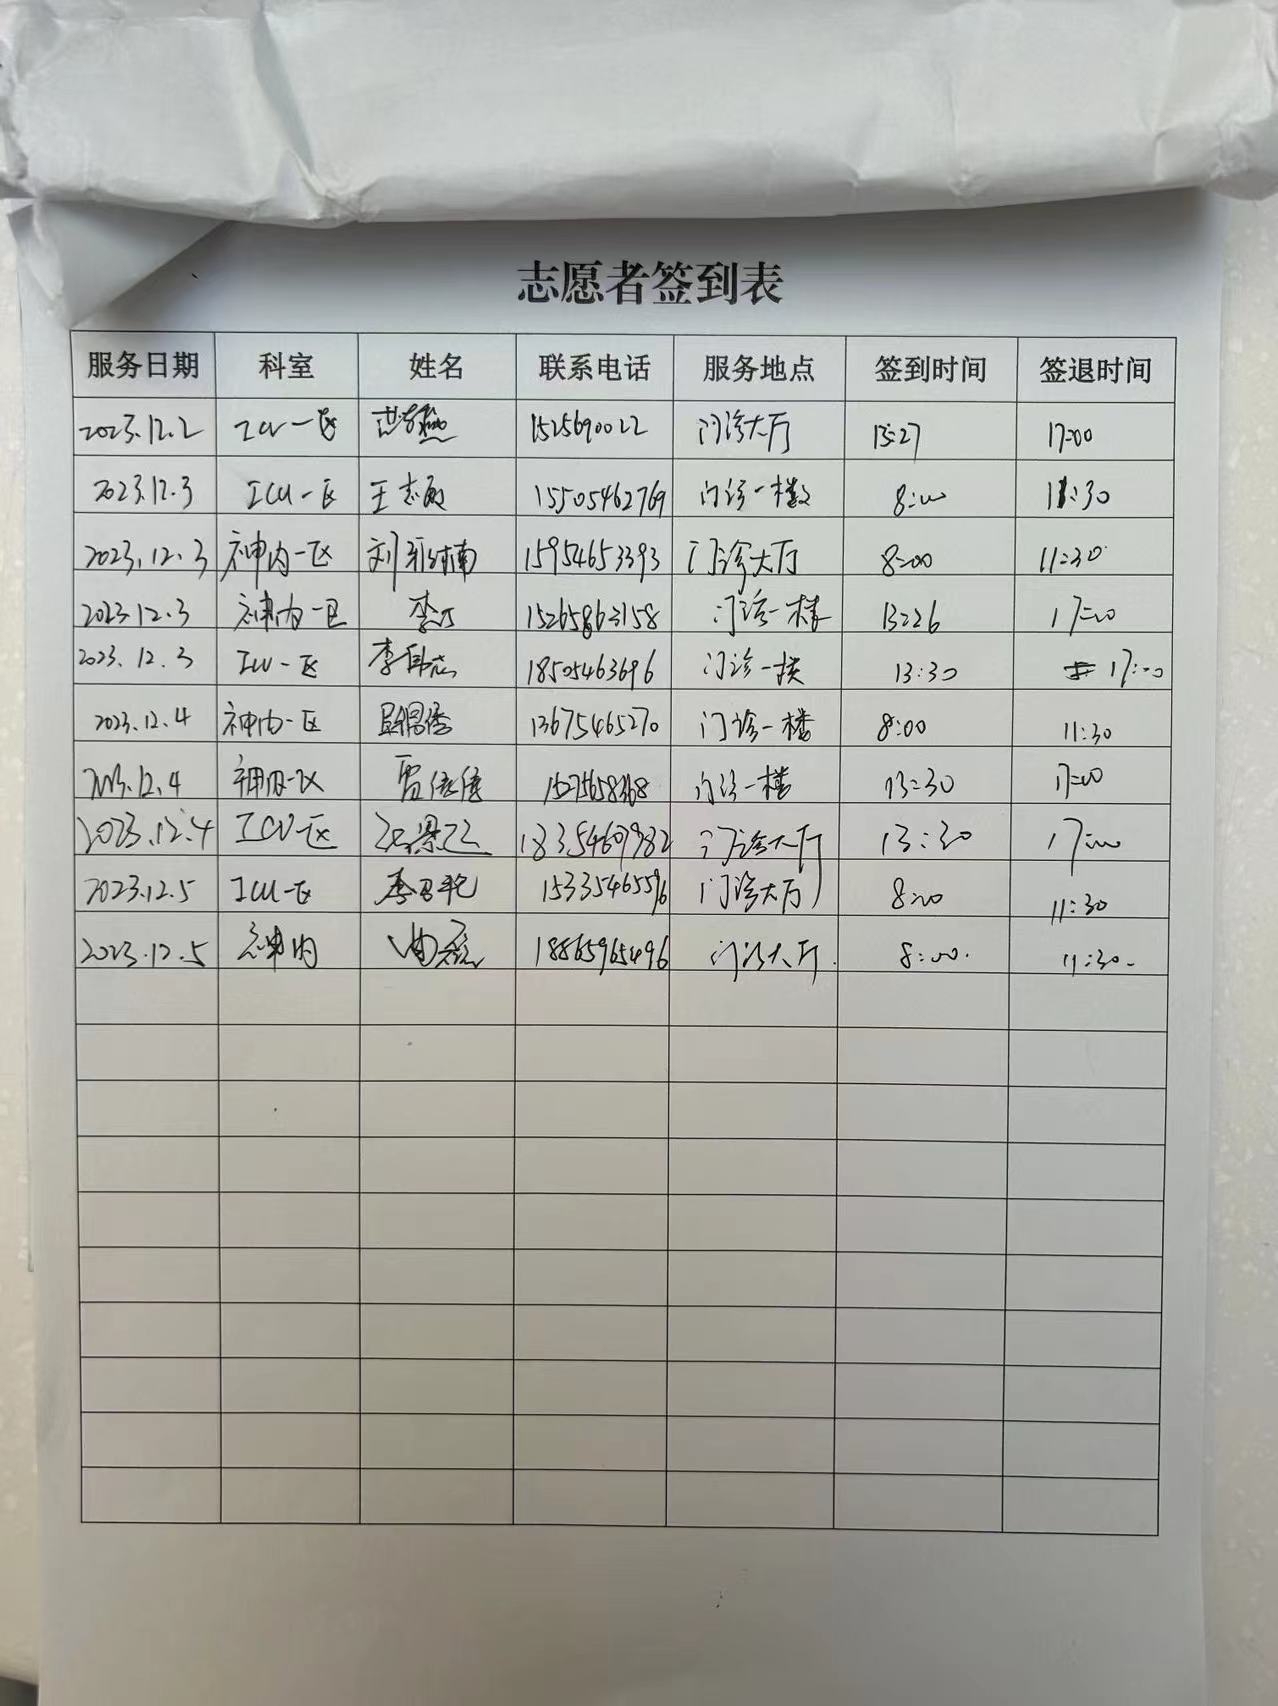 志愿者签到表
服务日期 科室 姓名 联系电话 服务地点 签到时间 签退时间
2023.12.2 ICU一区 1525690022 门诊大厅 13:27 17:00
2023.12.3 ICU一区 王志敏 15505462769 门诊一楼 8:00 11:30
2023.12.3 神内一区 刘 楠 15954653393 门诊大厅 8:00 11:30
2023.12.3 神内一区 15265863158 门诊一楼 13:26 17:00
2023.12.3 ICU一区 李 18505463696 门诊一楼 13:30 17:00
2023.12.4 神内一区 13675465270 门诊一楼 8:00 11:30
2023.12.4 神内一区 门诊一楼 13:30 17:00
2023.12.4 ICU一区 18354609982 门诊大厅 13:30 17:00
2023.12.5 ICU一区 李 15335465596 门诊大厅 8:00 11:30
2023.12.5 神内 18865965496 门诊大厅 8:00 11:30